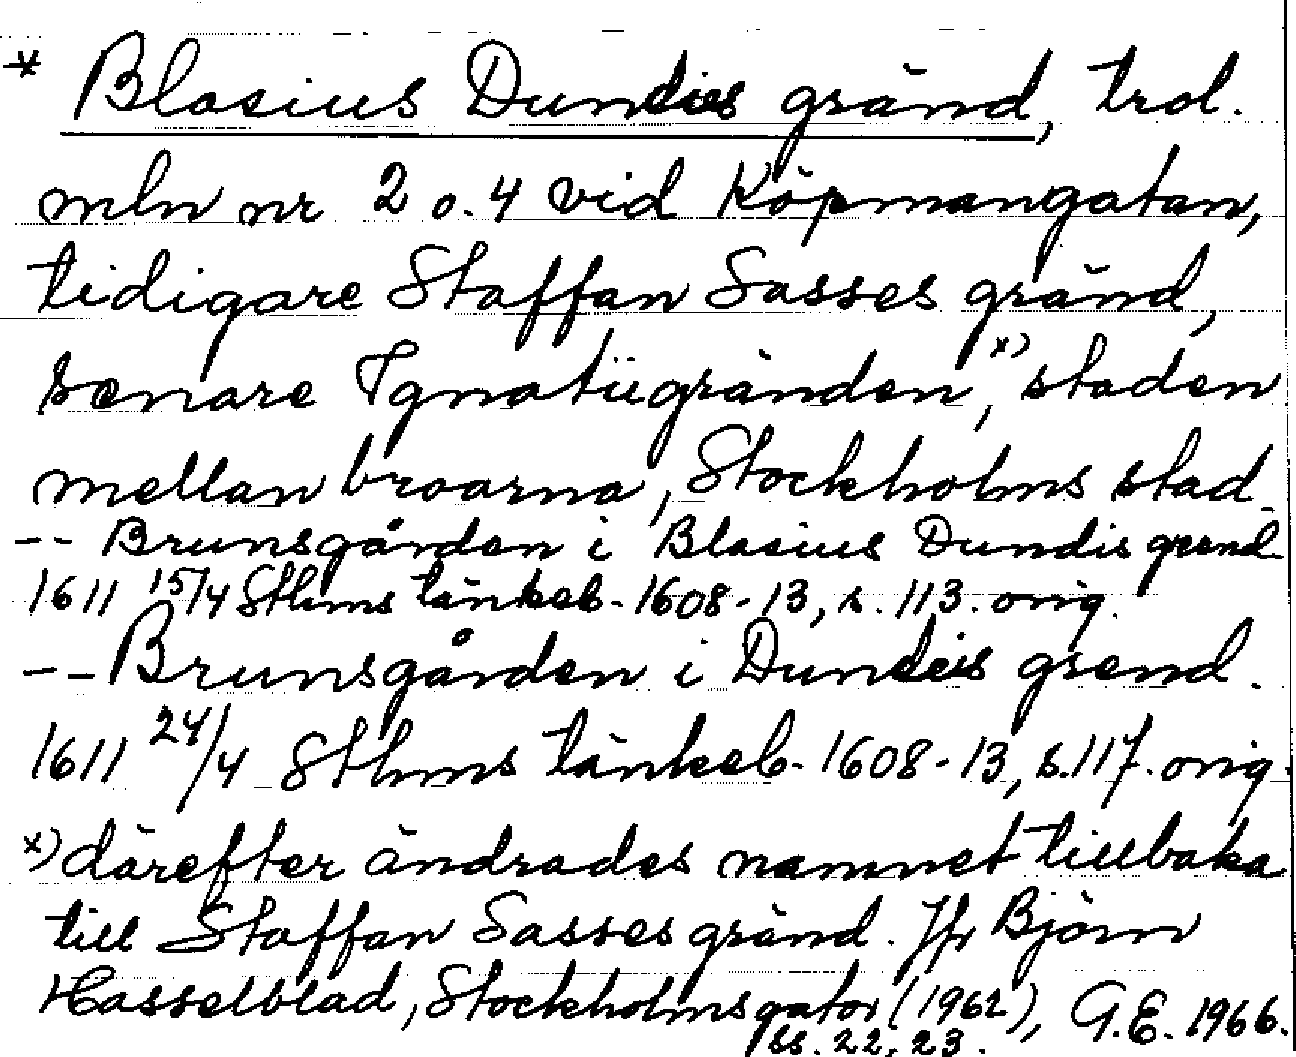 * Blasius Dundies gränd, trol.
mln nr 2 o. 4 vid Köpmangatan,
tidigare Staffan Sasses gränd,
senare Ignatiigränden,x) staden
mellan broarna, Stockholms stad
-- Brunsgården i Blasius Dundis grend
1611 15/4 Sthms tänkeb. 1608-13, s. 113. orig.
-- Brunsgården i Dundeis grend.
1611 24/4 Sthms tänkeb. 1608-13, s. 117. orig.
x) därefter ändrades namnet tillbaka
till Staffan Sasses gränd. Jfr Björn
Hasselblad, Stockholmsgator (1962), G.E. 1966.
ss. 22, 23.